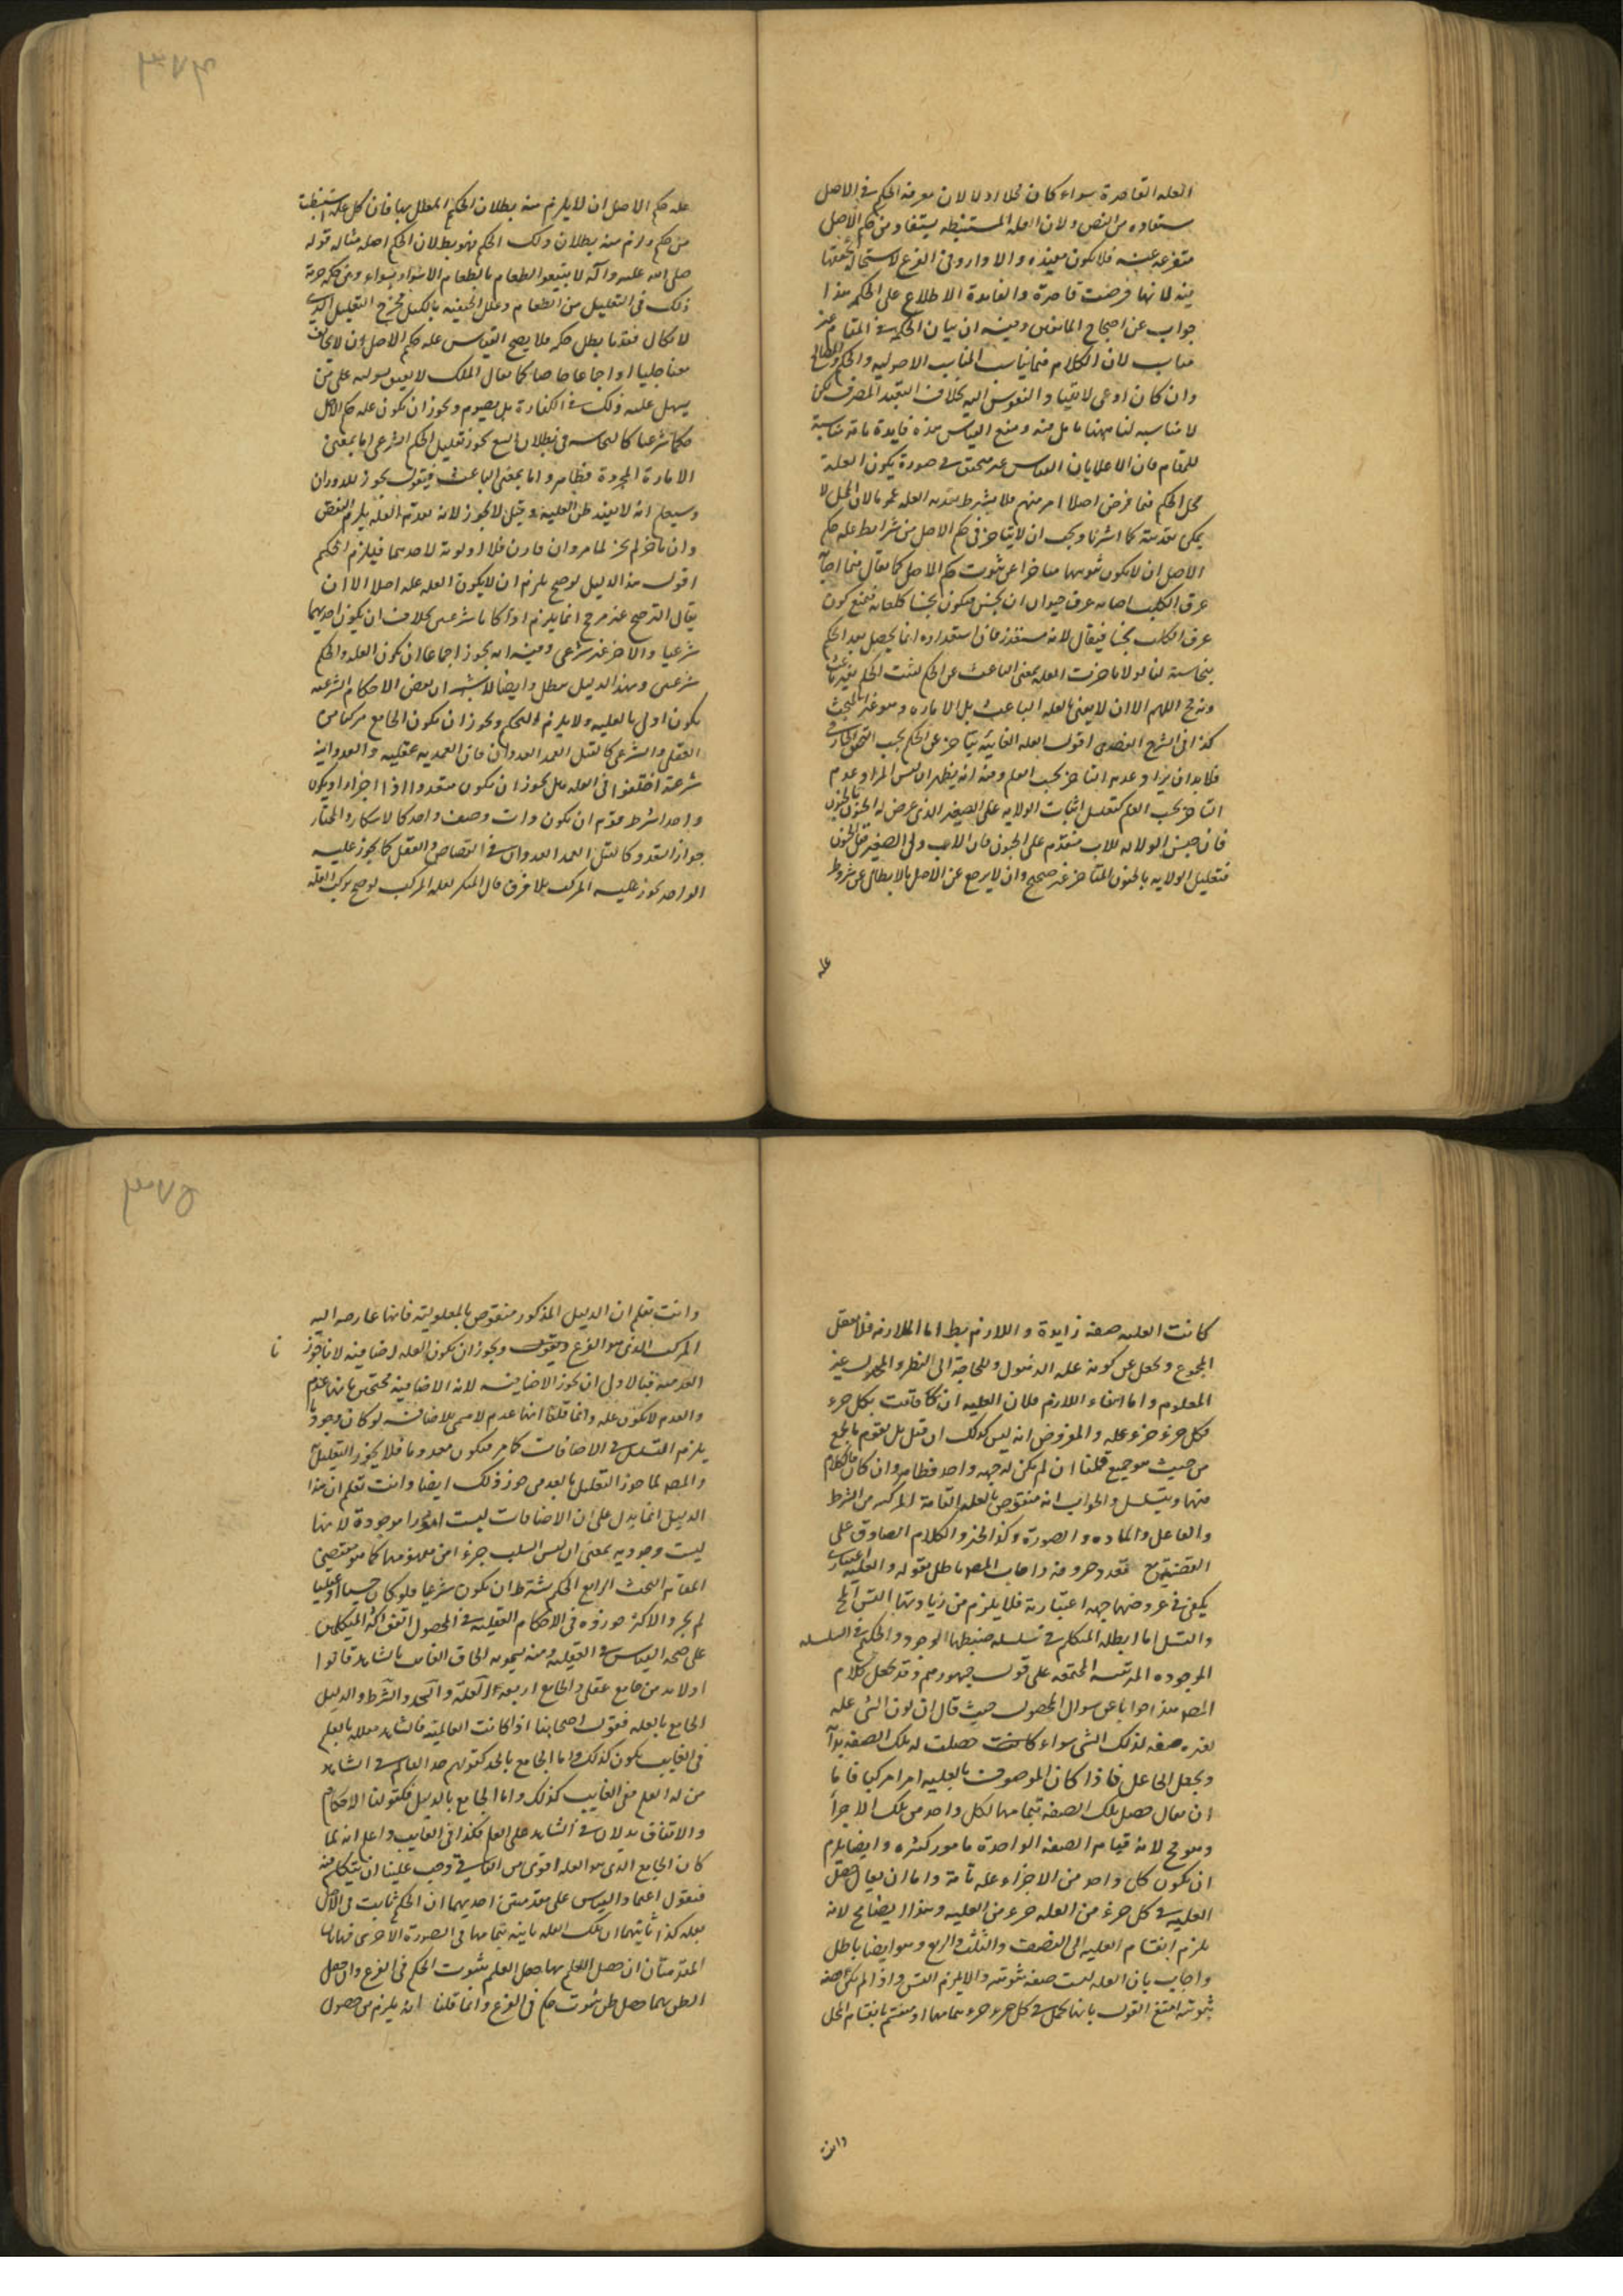 العله القاصرة سواء كان محلا اولا لان معرفة الحكم فى الاصل
مستفاده من النص ولان العله المستنبطه يستفاد من حكم الاصل
متفرعه عنه فلا يكون مفيده والا دار وفى الفرع لاستحاله تحققها
فيه لانها فرضت قاصرة والفايدة الاطلاع على الحكم هذا
جواب عن احتجاج المانعين وفيه ان بيان الحكم فى المقام غير
مناسب لان الكلام فيما يناسب المناسب الاصوليه والحكم والمصالح
وان كان ادعى لانقياد النفوس اليه بخلاف التعبد الصرف لكن
لا مناسبه لنا ههنا تامل فيه ومنع القياس هذه فايدة تامة مناسبة
للمقام فان الاعلام بان القياس غير متحقق فى صورة يكون العلة
محل الحكم فيما فرض اصلا امر مهم فلا يشترط تعديه العله عموما لان المحل لا
يمكن تعديته كما اشرنا ويجب ان لا يتاخر فى حكم الاصل من شرايط علة حكم
الاصل ان لا يكون ثبوتها متاخرا عن ثبوت حكم الاصل كما يقال فيما اصابه
عرق الكلب اصابه عرق حيوان نجس فيكون نجسا كلعابه فيمنع كون
عرق الكلب نجسا فيقال لانه مستقذر فان استقذاره انما يحصل بعد الحكم
بنجاسته لنا لو لا تاخرت العله بمعنى الباعث عن الحكم لثبت الحكم بغير باعث
وهو مح اللهم الا ان لا يعنى بالعله الباعث بل الاماره وهو غير المبحث
كذا فى الشرح العضدى اقول العله الغائيه يتاخر عن الحكم بحسب التحقق الخارجى
فلا بد ان يراد عدم التاخر بحسب العلم وفيه انه يظهر ان ليس المراد عدم
التاخر بحسب العلم كتعليل اثبات الولايه على الصغير الذى عرض له الجنون بالجنون
فان جنس الولايه للاب متقدم على الجنون فان الاب ولى الصغير قبل الجنون
فتعليل الولايه بالجنون المتاخر غير صحيح وان لا يرجع عن الاصل بالابطال من شروط
علة
علة حكم الاصل ان لا يلزم منه بطلان الحكم المعلل بها فان كل علة استنبطت
من حكم ولزم منه بطلان ذلك الحكم فهو بطلان الحكم اصله مثاله قوله
صلى الله عليه وآله لا تبيعوا الطعام بالطعام الا سواء بسواء وفى حكم حرمة
ذلك فى التعليل من الطعام وعلل الحنفيه بالكيل فخرج القليل الذى
لا يكال فقد ما بطل حكمه فلا يصح القياس علة حكم الاصل وان لا يخالف
نصا جليا او اجماعا خاصا كما يقال الملك لا يعتق سهولته على من
يسهل عليه ذلك فى الكفارة بل يصوم ويجوز ان يكون علة حكم الاصل
حكما شرعيا كالنجاسه فى بطلان البيع يجوز تعليل الحكم الشرعى اما بمعنى
الامارة المجردة فظاهر واما بمعنى الباعث فيقول يجوز للدوران
وسيعلم انه لا يفيد ظن العليه وقيل لا يجوز لانه بعدمه العله يلزم النقض
وان تاخر لم يجز لما مر وان قارن فلا اولوية لاحدهما فيلزم التحكم
اقول هذا الدليل لو صح يلزم ان لا يكون العله علة اصلا الا ان
يقال الترجيح غير مرجح انما يلزم اذا كانا شرعيين بخلاف ان يكون احديهما
شرعيا والاخر غير شرعى وفيه انه يجوز اجماعا ان يكون العله والحكم
شرعيين وبهذا الدليل يبطل وايضا لا شبهة ان بعض الاحكام الشرعيه
يكون اولى بالعليه ولا يلزم التحكم ويجوز ان يكون الجامع مركبا من
العقلى والشرعى كالقتل العمد العدوان فان العمديه عقليه والعدوانيه
شرعية اختلفوا فى العله هل يجوز ان يكون متعددا اذا اجزاء او يكون
واحدا شرط قوم ان يكون ذات وصف واحد كالاسكار والمختار
جواز التعدد كالقتل العمد العدوان فى القصاص والعقل كما يجوز عليه
الواحد يجوز عليه المركب بلا فرق قال المنكر لعله المركب لو صح تركب العله
كانت العليه صفه زايدة واللازم بط اما الملازمه فلانا نعقل
المجموع ونجهل عن كونه علة الذهول وللحاجة الى النظر والمجهول غير
المعلوم واما انتفاء اللازم فلان العليه ان كانت قامت بكل جزء
فكل جزء جزء علة والمفروض انه ليس كذلك ان قيل بل تقوم بالجميع
من حيث هو جميع قلنا ان لم يكن له جهة واحدة فظاهر وان كان فالكلام
فيها ويتسلسل والجواب انه منقوض بالعله التامة المركبه من الشرط
والفاعل والماده والصورة وكذا الخبر والكلام الصادق على
القضية مع تعدد حروفه واجاب المص ما بطل بقوله والعليه اعتبارى
يكفى فى عروضها جهة اعتبارية فلا يلزم من زيادتها التس المح
والتسل اما ابطله المتكلم فى تسلسل ضبطها الوجود والحكيم فى السلسله
الموجوده المرتبه المجتمعه على قول جمهورهم وقد جعل كلام
المص هذا جوابا عن سوال المحصول حيث قال ان كون الشى علة
لغيره صفه لذلك الشى سواء كانت حصلت له تلك الصفه بذاته
وبجعل الجاعل فاذا كان الموصوف بالعليه امرا مركبا فاما
ان يقال حصل تلك الصفه بتمامها لكل واحد من تلك الاجزاء
وهو مح لانه قيام الصفه الواحدة بامور كثيره وايضا يلزم
ان يكون كل واحد من الاجزاء علة تامة واما ان يقال حصل
العليه فى كل جزء من العله جزء من العليه وهذا ايضا مح لانه
يلزم انقسام العليه الى النصف والثلث والربع وهو ايضا باطل
واجاب بان العله ليست صفه ثبوتيه والا لزم التس واذا لم يكن صفه
ثبوتيه امتنع القول بانها تحل فى كل جزء جزء بتمامها او منقسم بانقسام المحل
وانت
وانت تعلم ان الدليل المذكور منقوض بالمعلولية فانها عارضه اليه
المركب الذى هو الفرع ويقول ويجوز ان يكون العله اضافيه لانا نجوز
العدميه فبالاولى ان يجوز الاضافيه لانه الاضافيه مختص بانها عدم
والعدم لا يكون علة وانما قلنا انها عدم لا مسمى للاضافه لو كان وجوديا
يلزم التسلسل فى الاضافات كما مر فيكون معدوما فلا يجوز التعليل
والمص لما جوز التعليل بالعدمى جوز ذلك ايضا وانت تعلم ان هذا
الدليل انما يدل على ان الاضافات ليست امورا موجودة لا انها
ليست وجوديه بمعنى ان ليس السلب جزءا من مفهومها كما هو مقتضى
المقام البحث الرابع الحكم يشترط ان يكون شرعيا فلو كان حسيا او عقليا
لم يجز والاكثر جوزوه فى الاحكام العقليه فى المحصول اتفق اكثر المتكلمين
على صحه القياس فى العقليه ومنه يسمونه الحاق الغائب بالشاهد قالوا
ولا بد من جامع عقلى والجامع اربعة العلة والحد والشرط والدليل
الجامع بالعله فقول اصحابنا اذا كانت العالمية فى الشاهد معللة بالعلم
فى الغايب يكون كذلك واما الجامع بالحد كقولهم حد العالم فى الشاهد
من له العلم ففى الغايب كذلك واما الجامع بالدليل فكقولنا الاحكام
والاتقان يدلان فى الشاهد على العلم فكذا فى الغايب واعلم انه لما
كان الجامع الذى هو العله اقوى من الباقى وجب علينا ان نتكلم فيه
فنقول اعتماد القياس على مقدمتين احديهما ان الحكم ثابت فى الاصل
بعلة كذا ثانيتهما ان تلك العله ثابتة بتمامها فى الصورة الاخرى فهاتان
المقدمتان ان حصل العلم بهما حصل العلم بثبوت الحكم فى الفرع وان حصل
الظن بهما حصل ظن ثبوت حكم فى الفرع وانما قلنا انه يلزم من حصول